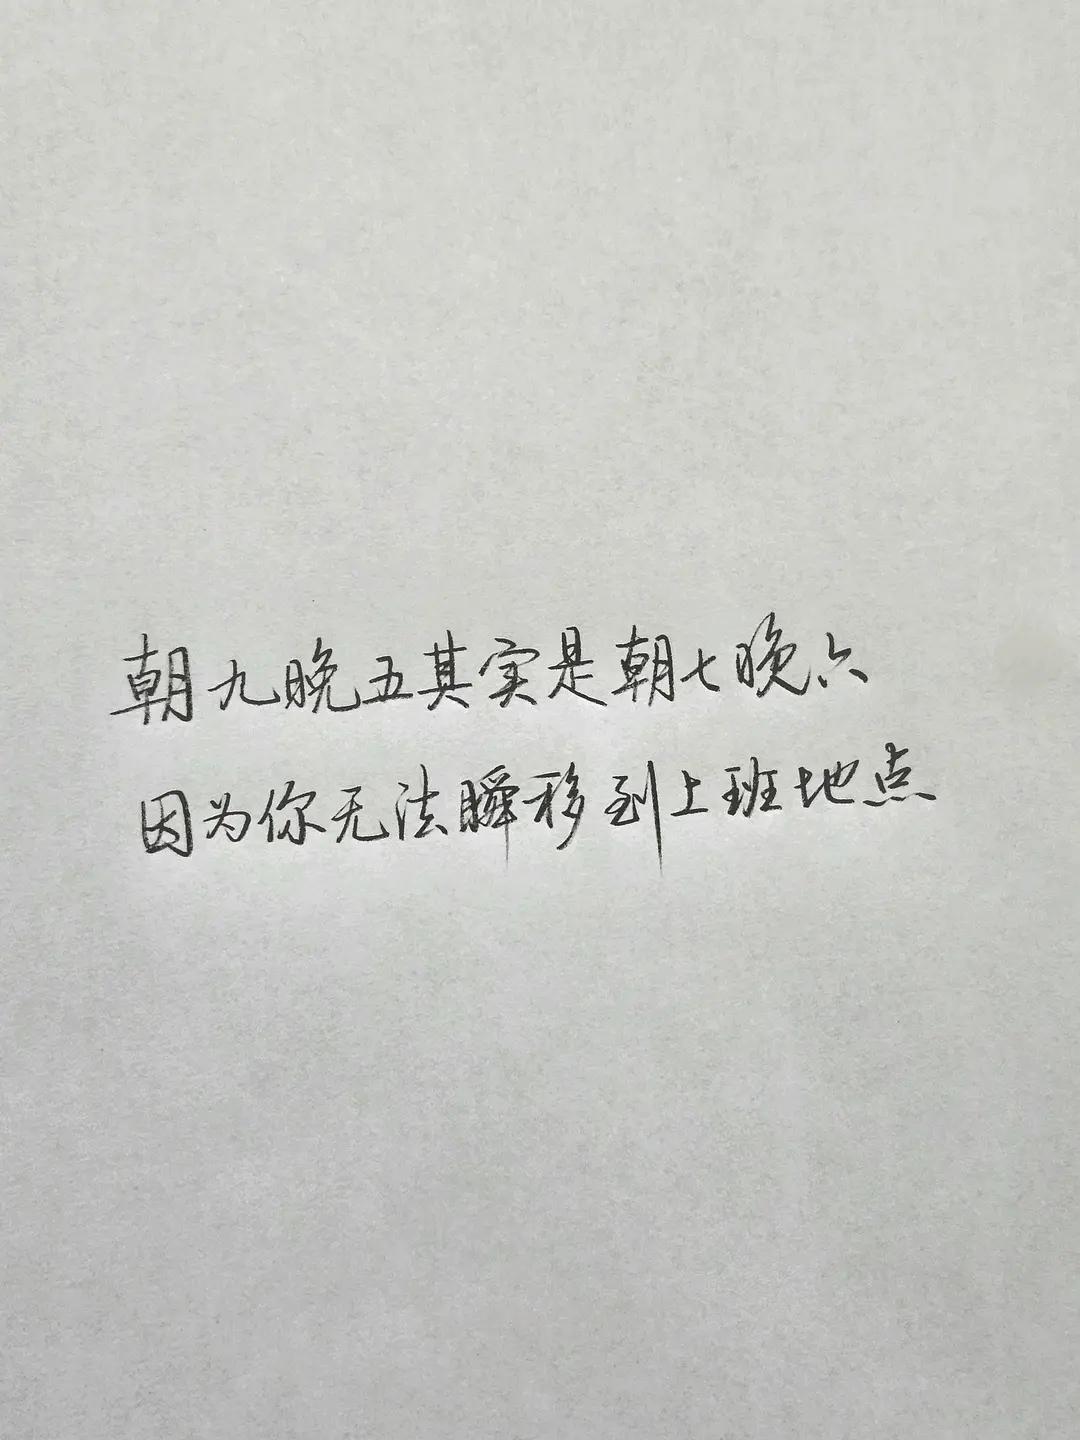 朝九晚五其实是朝七晚六
因为你无法瞬移到上班地点